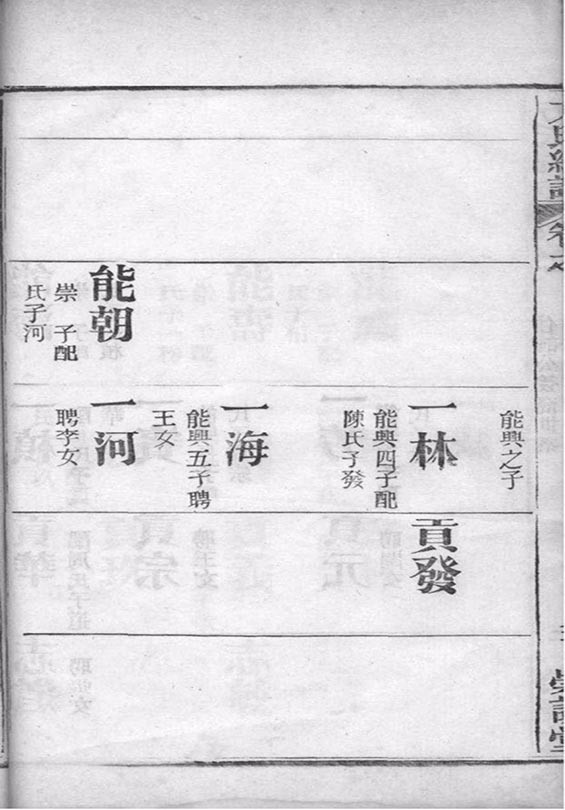 能興之子
一林
能興四子配
陳氏子發
貢發
一海
能興五子聘
王女
能朝
崇 子配
氏子河
一河
聘李女